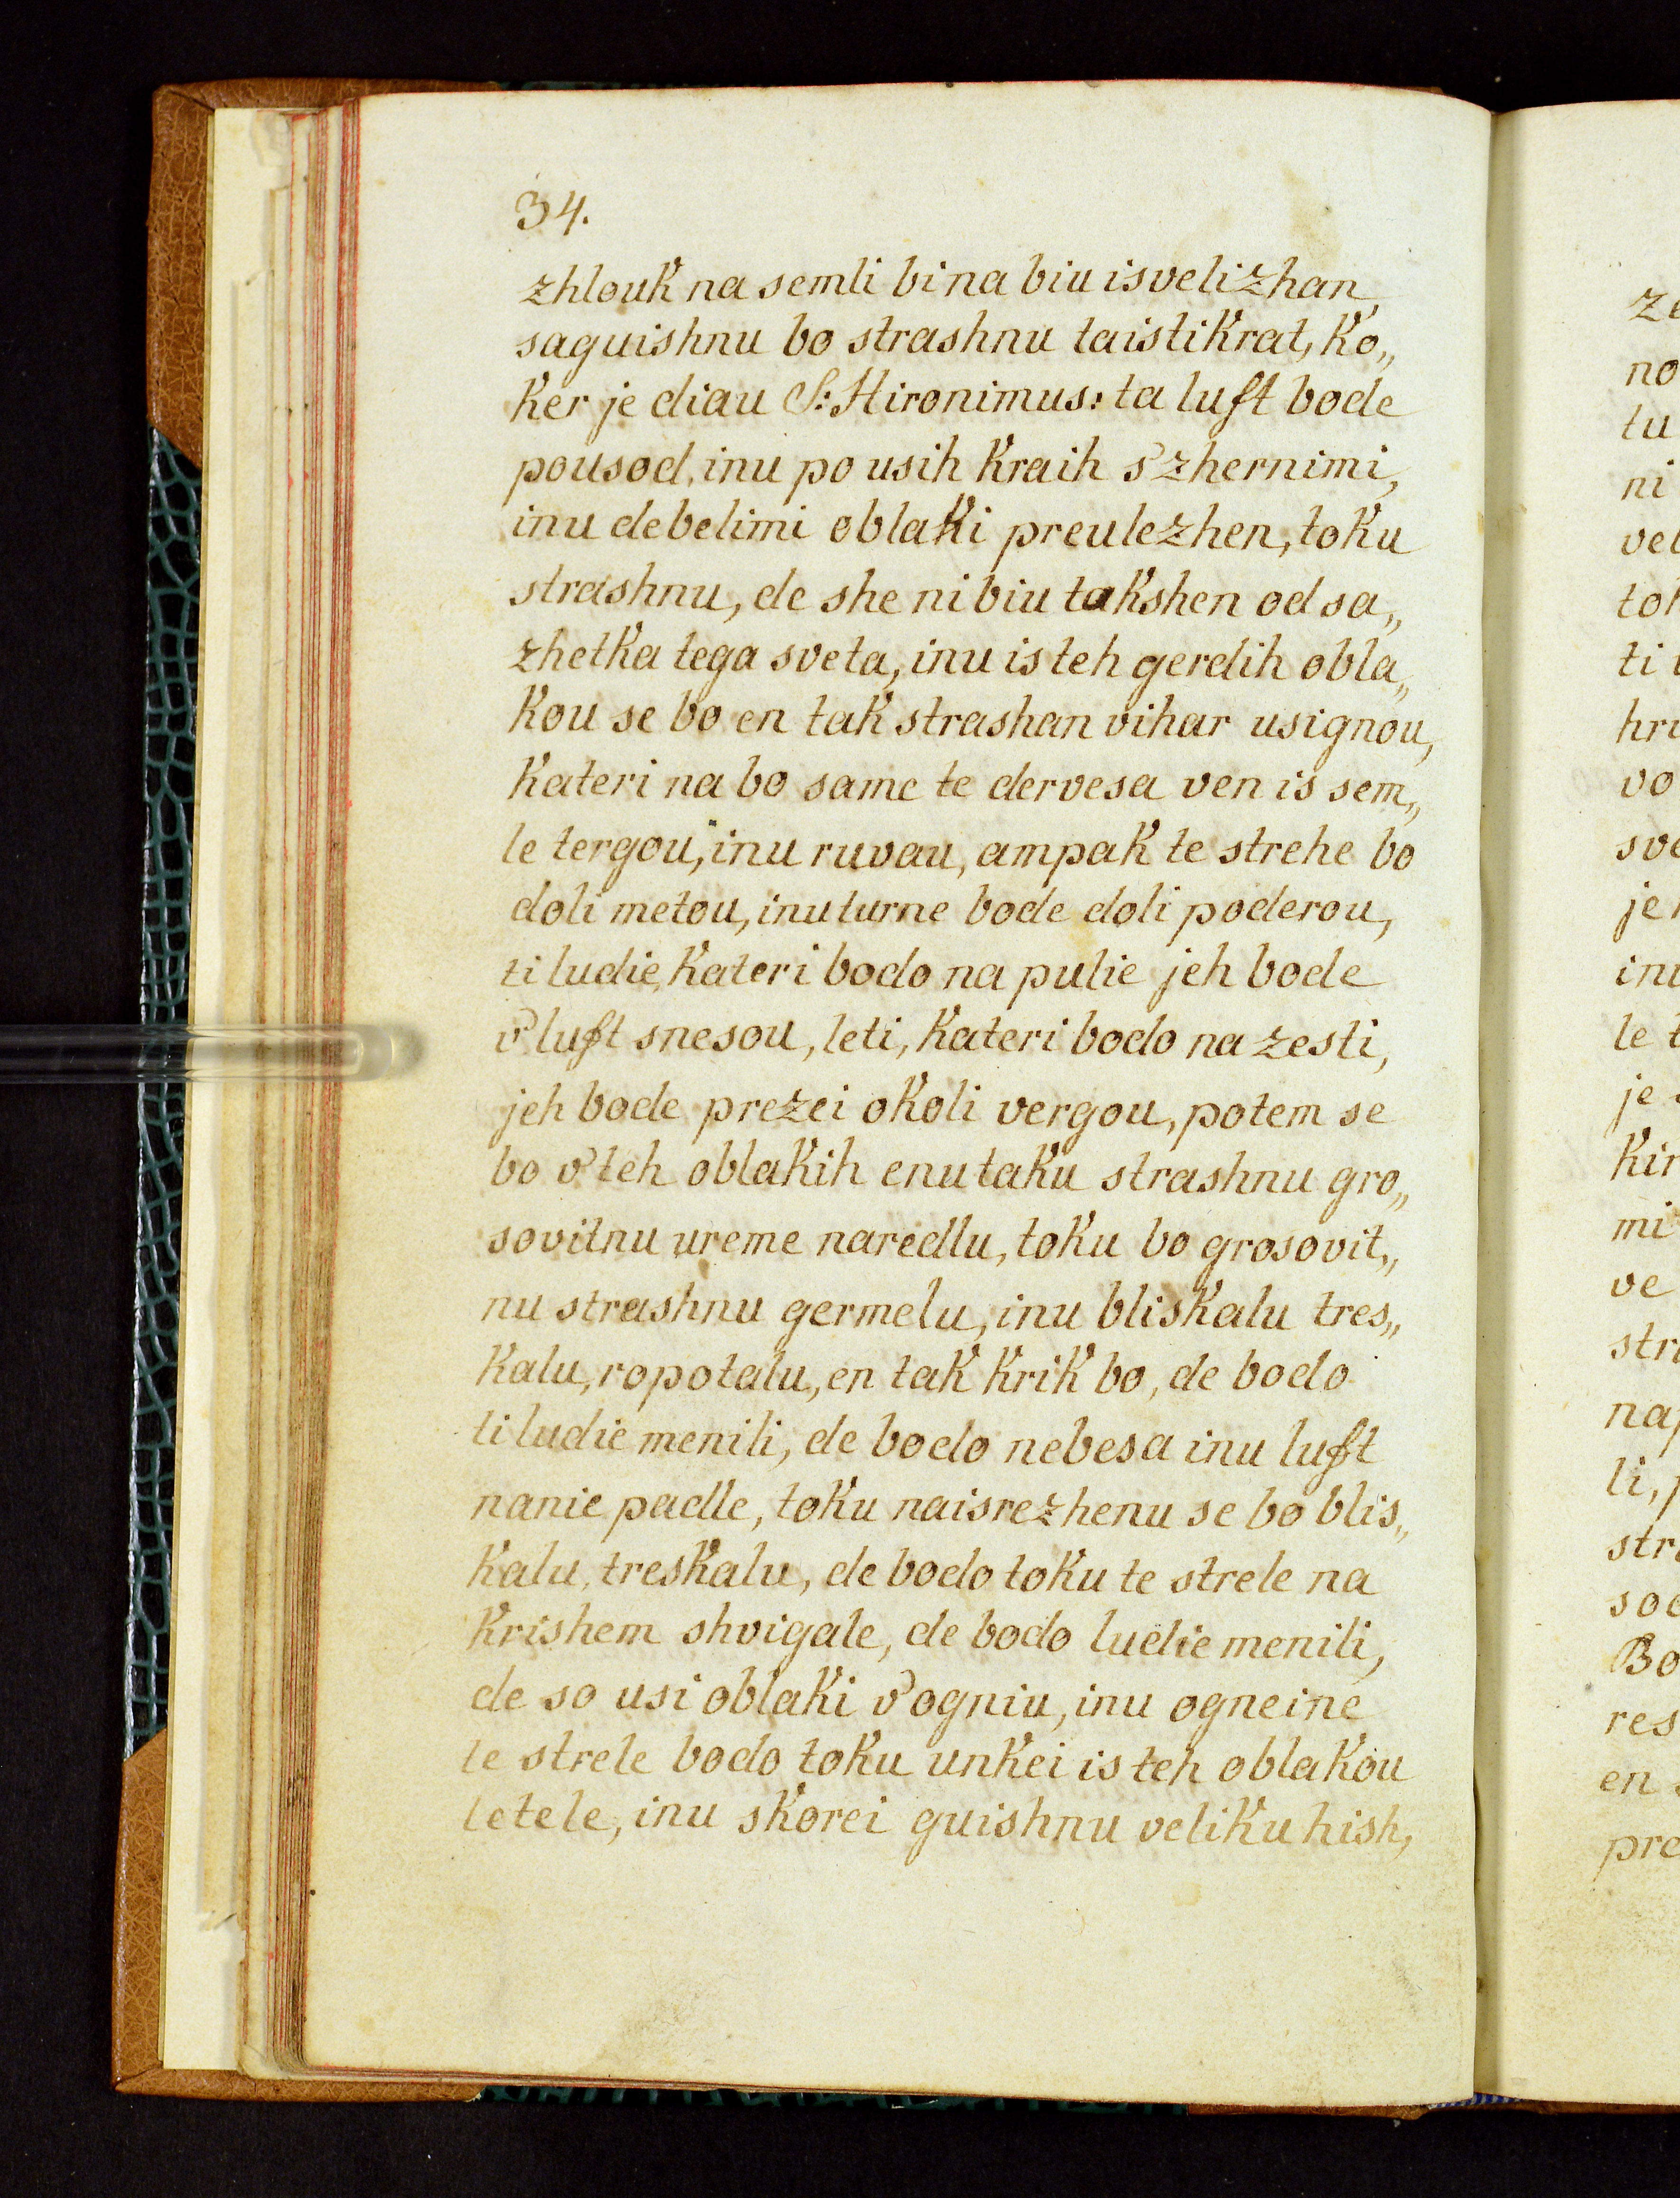 34.
zhlouk na semli bi na biu isvelizhan,
saguishnu bo strashnu taistikrat, ko„
ker je diau S: Hironimus: ta luft bode
pousod, inu po usih kraih s'zhernimi,
inu debelimi oblaki preulezhen, toku
strashnu, de she ni biu takshen od sa„
zhetka tega sveta, inu is teh gerdih obla„
kou se bo en tak strashan vihar usignou,
kateri na bo same te dervesa ven is sem„
le tergou, inu ruvau, ampak te strehe bo
doli metou, inu turne bode doli poderou,
ti ludie, kateri bodo na pulie jeh bode
v'luft snesou, leti, kateri bodo na zesti,
jeh bode prezei okoli vergou, potem se
bo v'teh oblakih enu taku strashnu gro„
sovitnu ureme naredlu, toku bo grosovit„
nu strashnu germelu, inu bliskalu tres„
kalu, ropotalu, en tak krik bo, de bodo
ti ludie menili, de bodo nebesa inu luft
nanie padle, toku naisrezhenu se bo blis„
kalu, treskalu, de bodo toku te strele na
krishem shvigale, de bodo ludie menili,
de so usi oblaki v'ogniu, inu ogneine
te strele bodo toku unkei is teh oblakou
letele, inu skorei guishnu veliku hish,
no
tu
ni
ti
vo
je
le t
je
mi
ve
li,
Bo
res
en
pre